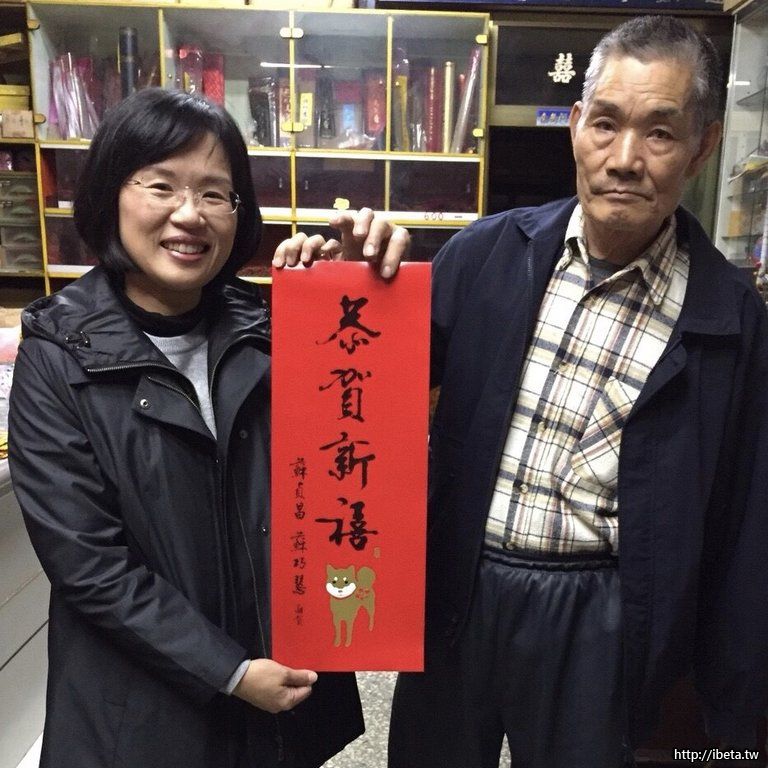 囍
600
恭賀新禧
蘇貞昌 蘇巧慧 敬賀
http://ibeta.tw